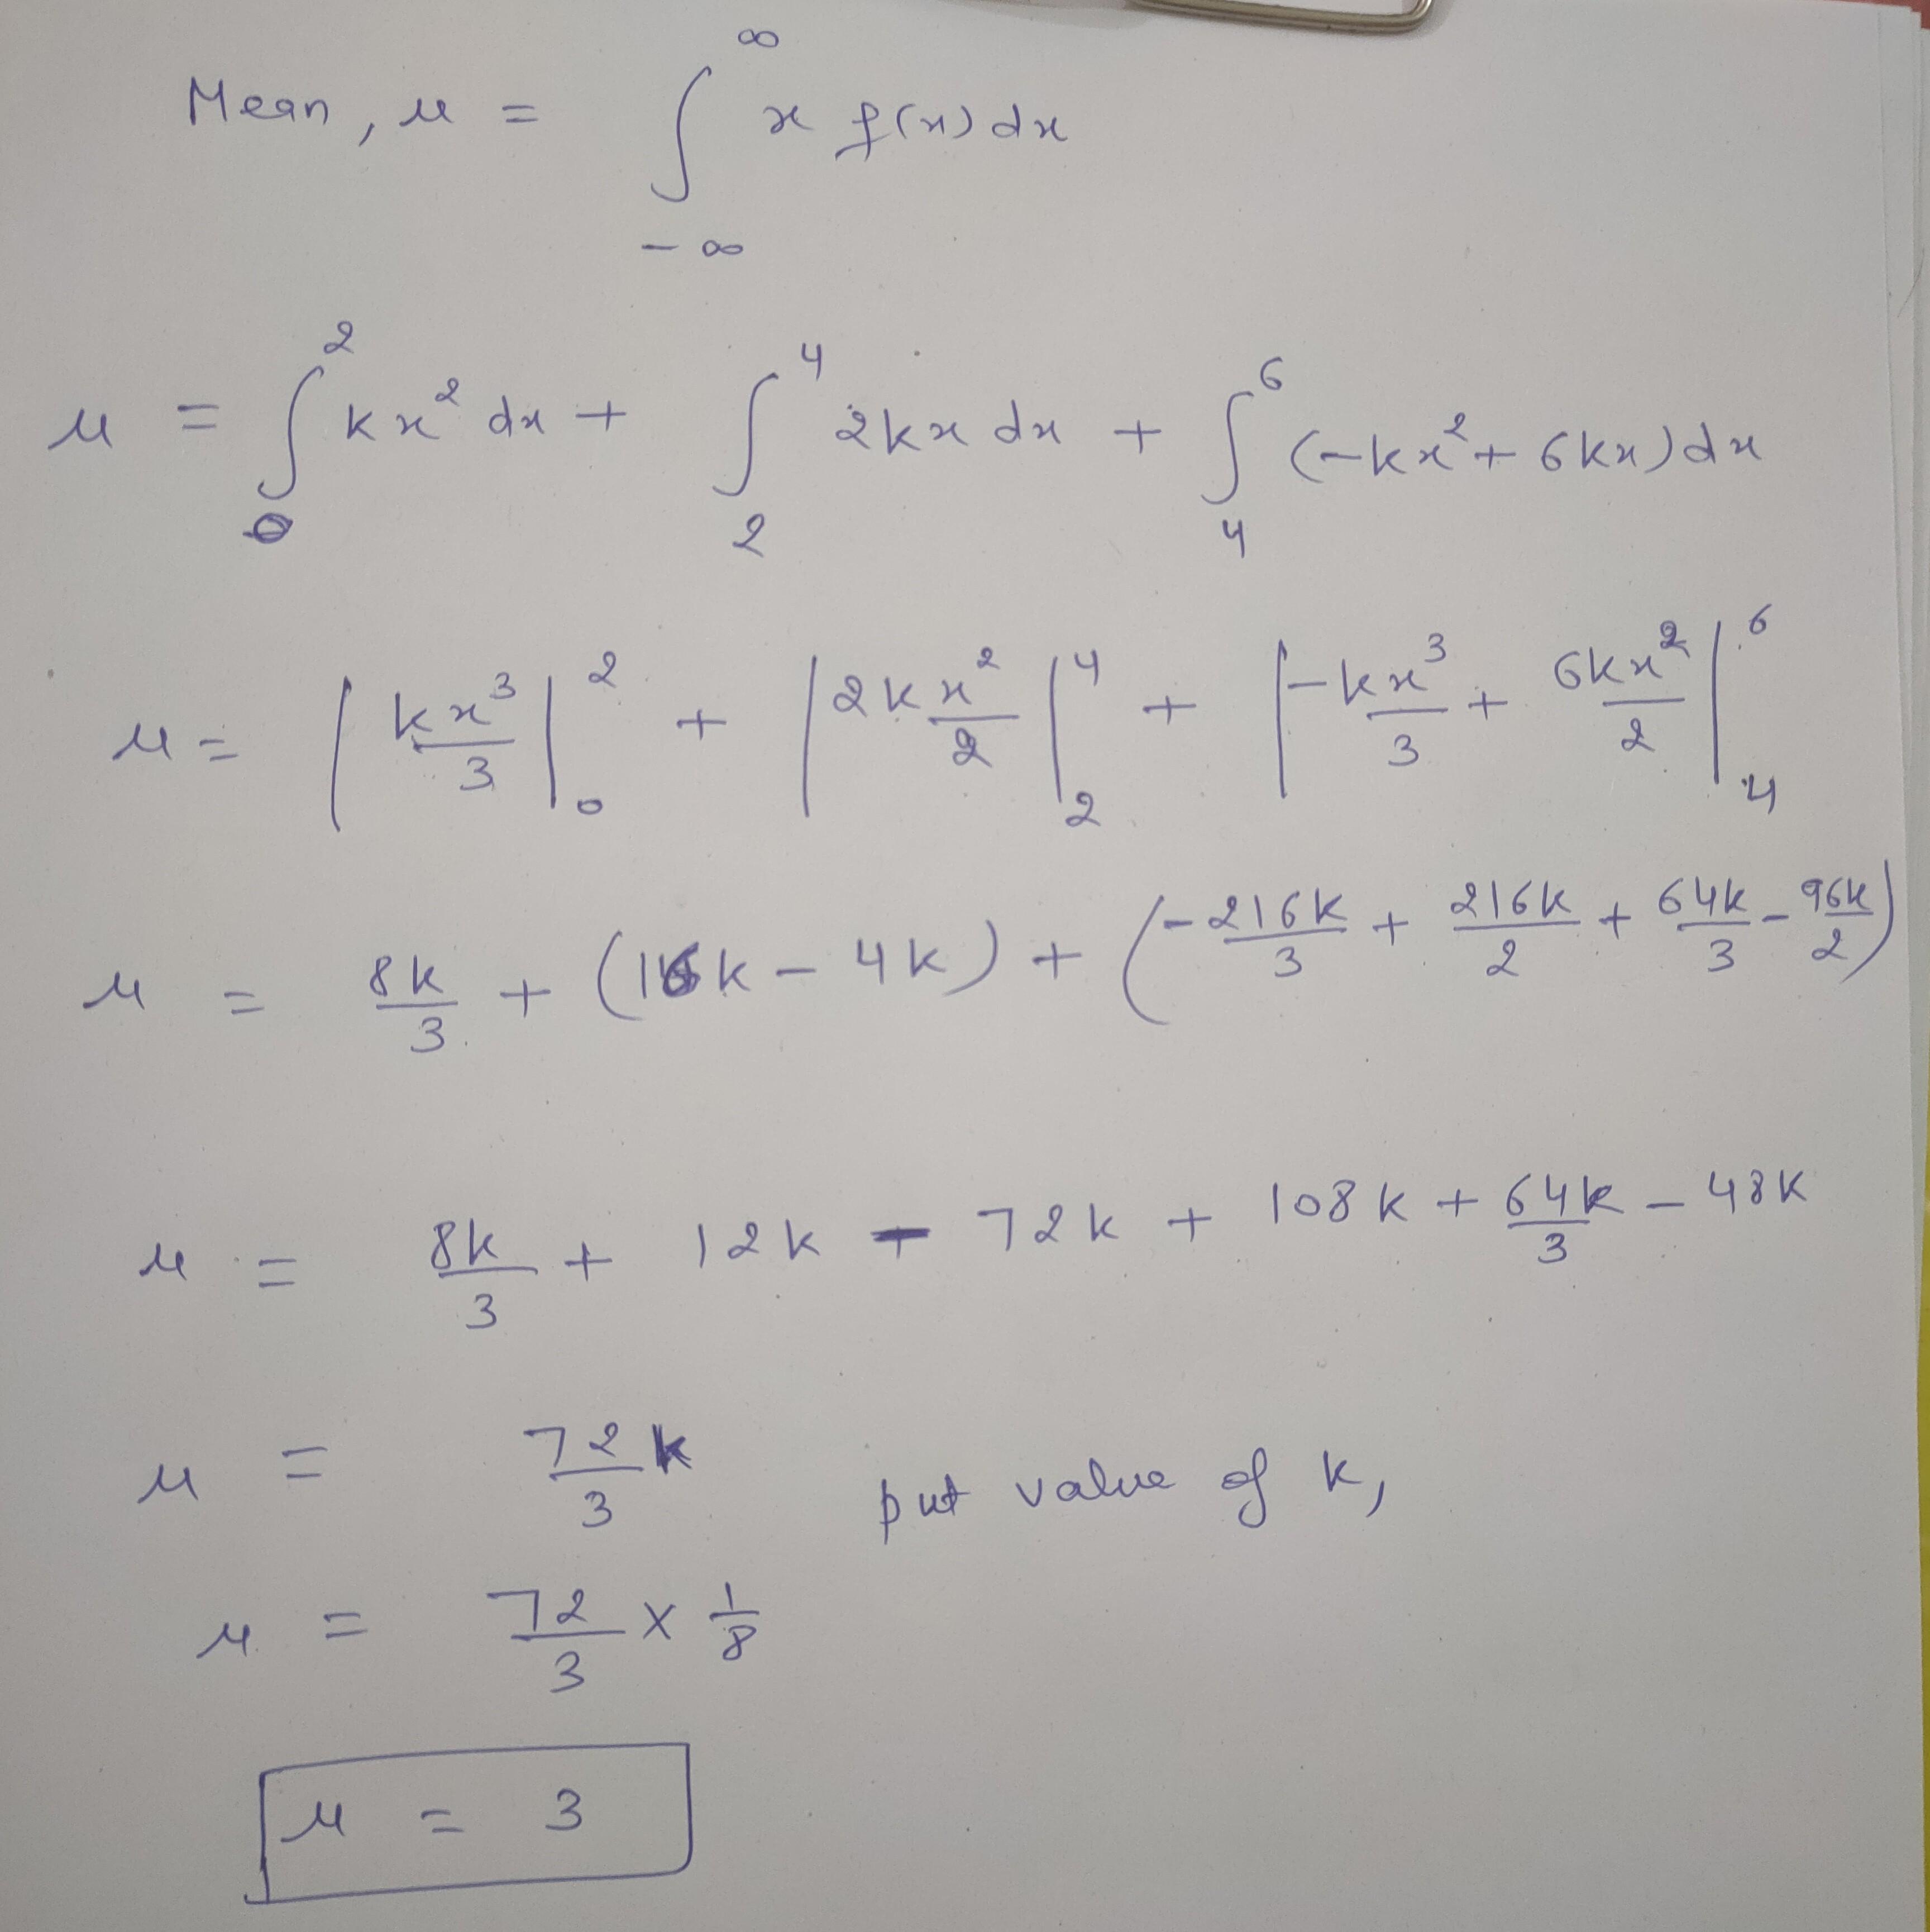 Mean, μ = ∫_{-∞}^{∞} x f(x) dx
μ = ∫_{0}^{2} kx² dx + ∫_{2}^{4} 2kx dx + ∫_{4}^{6} (-kx² + 6kx) dx
μ = | kx³/3 |_{0}^{2} + | 2k x²/2 |_{2}^{4} + | -kx³/3 + 6kx²/2 |_{4}^{6}
μ = 8k/3 + (16k - 4k) + (-216k/3 + 216k/2 + 64k/3 - 96k/2)
μ = 8k/3 + 12k - 72k + 108k + 64k/3 - 48k
μ = 72k/3 put value of k,
μ = 72/3 × 1/8
μ = 3